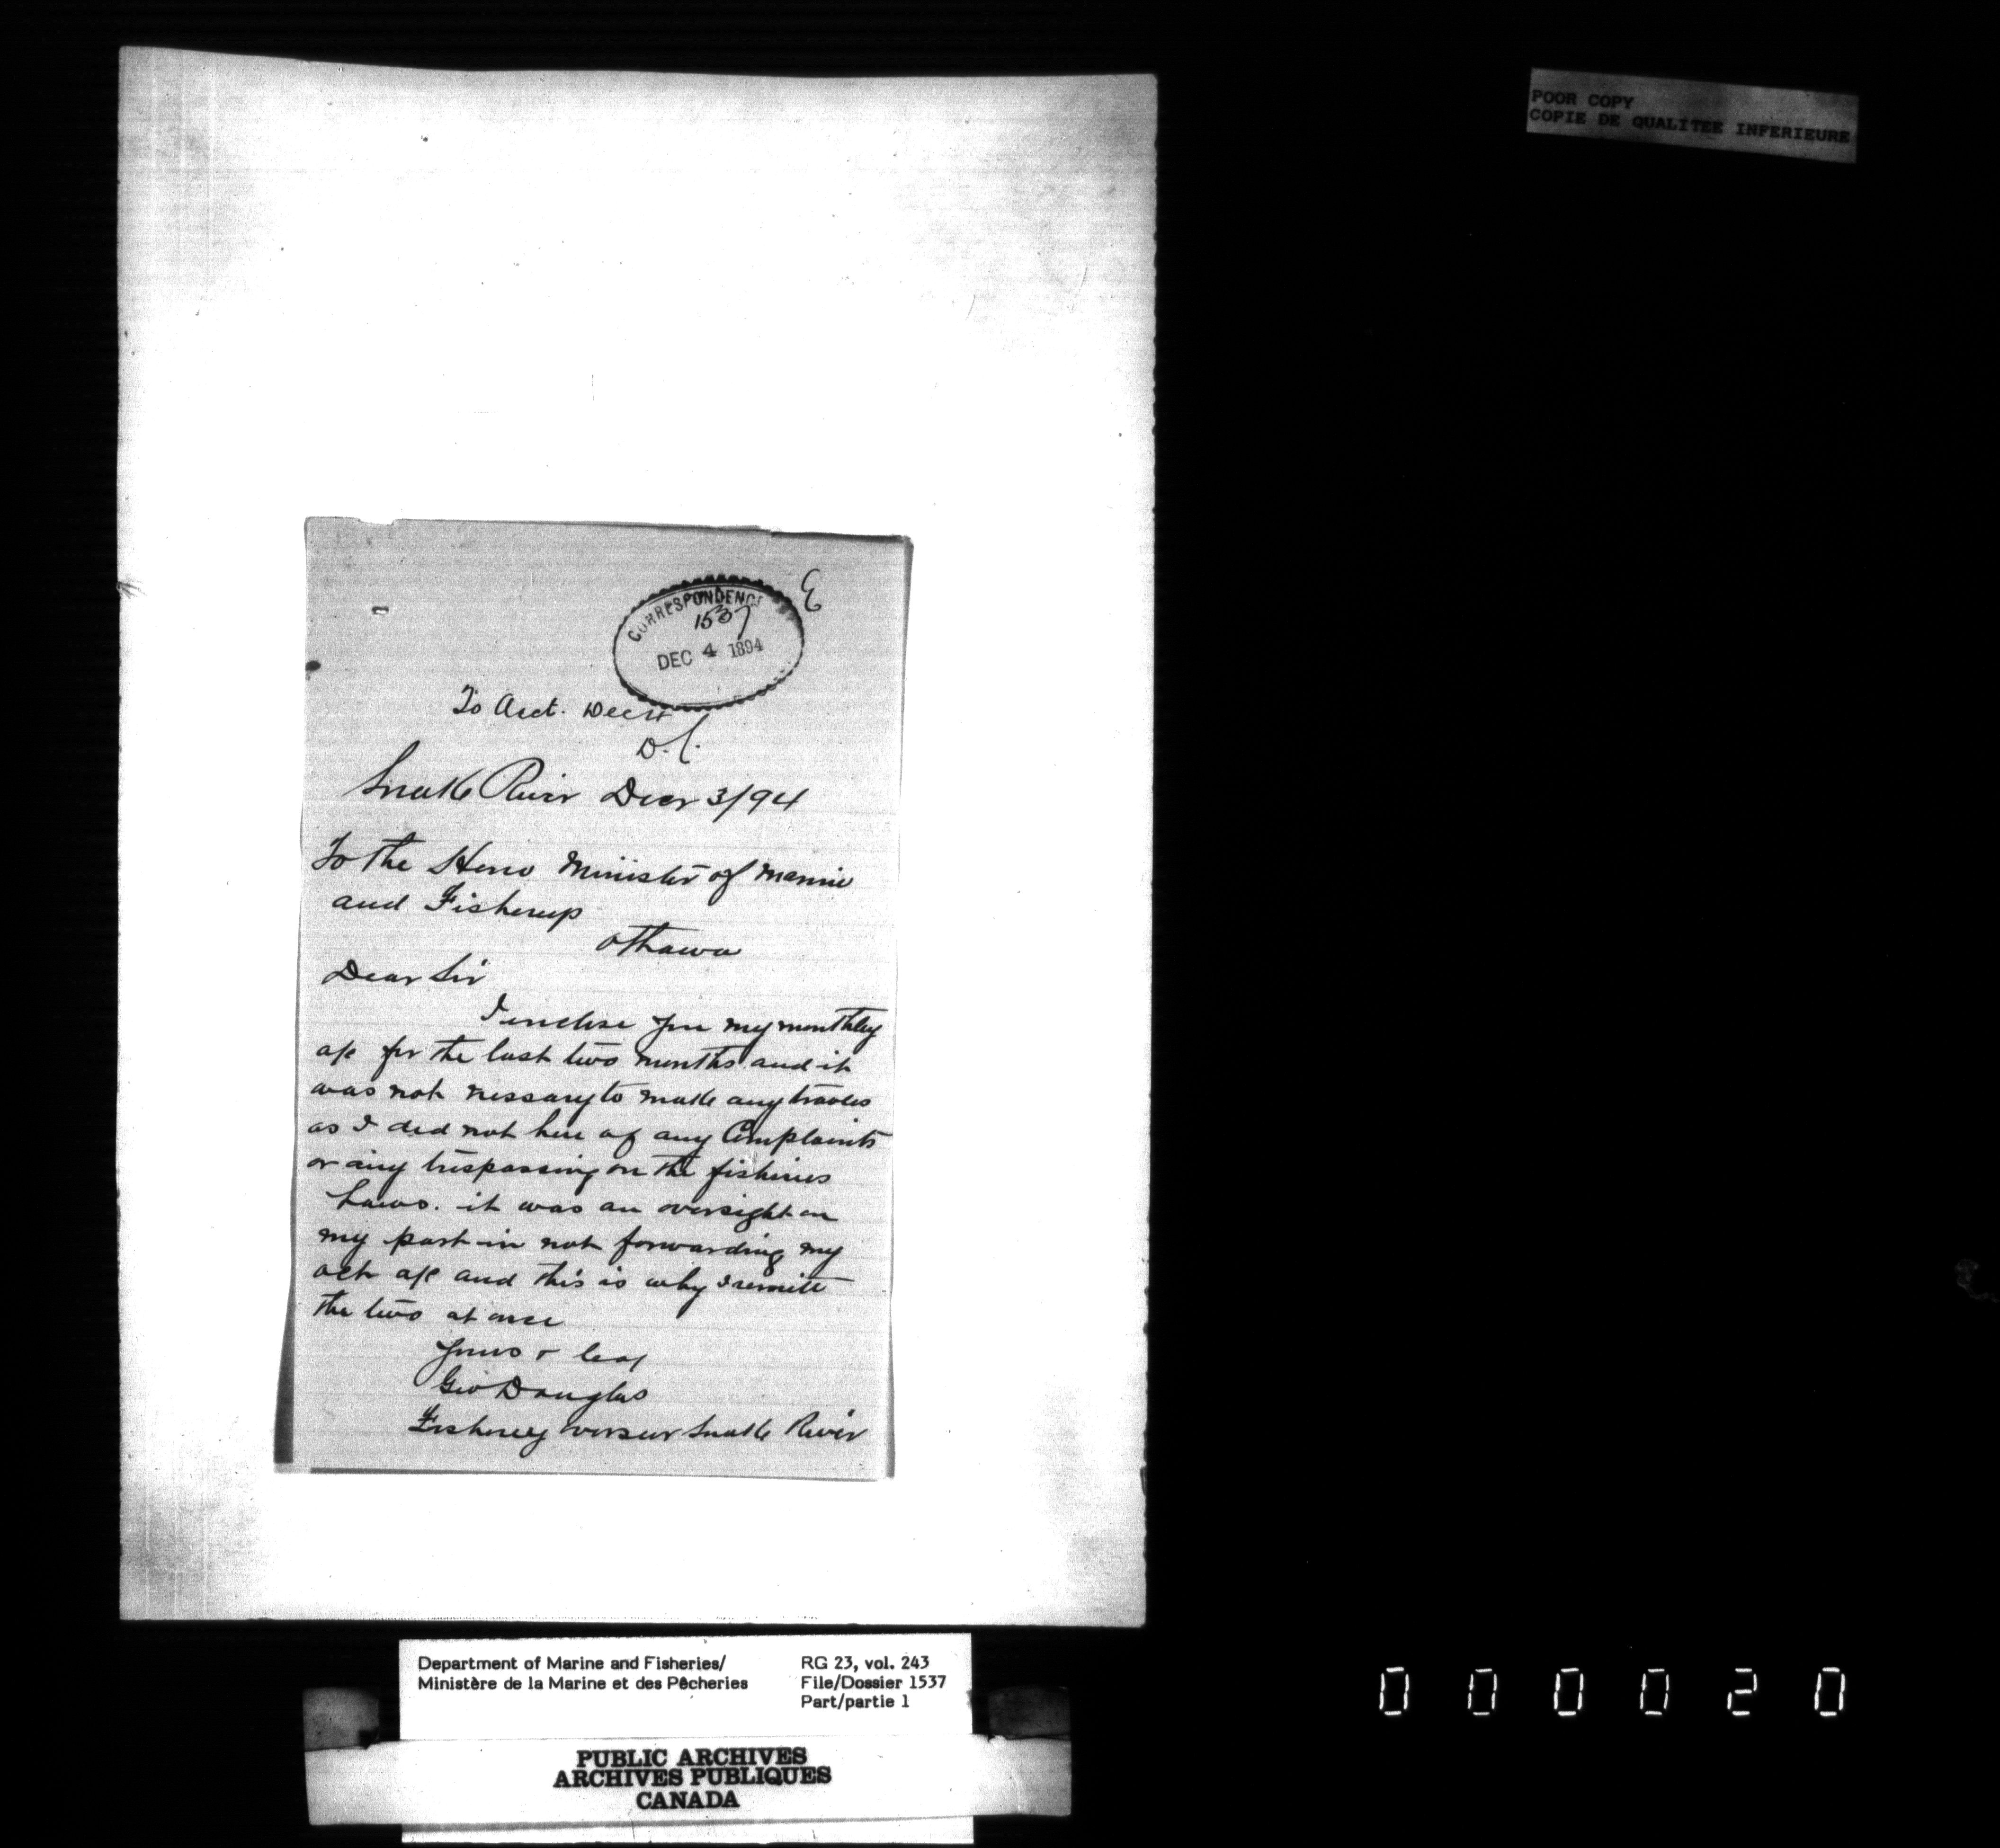 POOR COPY
COPIE DE QUALITEE INFERIEURE
E
CORRESPONDENCE
1537
DEC 4 1894
To Acct. Dec 4
D.C.
Snake River Decr 3/94
To the Hono Minister of Marine
and Fisherys
Ottawa
Dear Sir
I enclose you my monthley
a/c for the last two months and it
was not nessary to make any travels
as I did not here of any Complaints
or any trespassing on the fisheries
Laws. it was an oversight on
my part in not forwarding my
oct a/c and this is why I remitt
the two at once
yours &
Geo Douglas
Fishery overseer Snake River
Department of Marine and Fisheries/ RG 23, vol. 243
Ministère de la Marine et des Pêcheries File/Dossier 1537
Part/partie 1
PUBLIC ARCHIVES
ARCHIVES PUBLIQUES
CANADA
000020